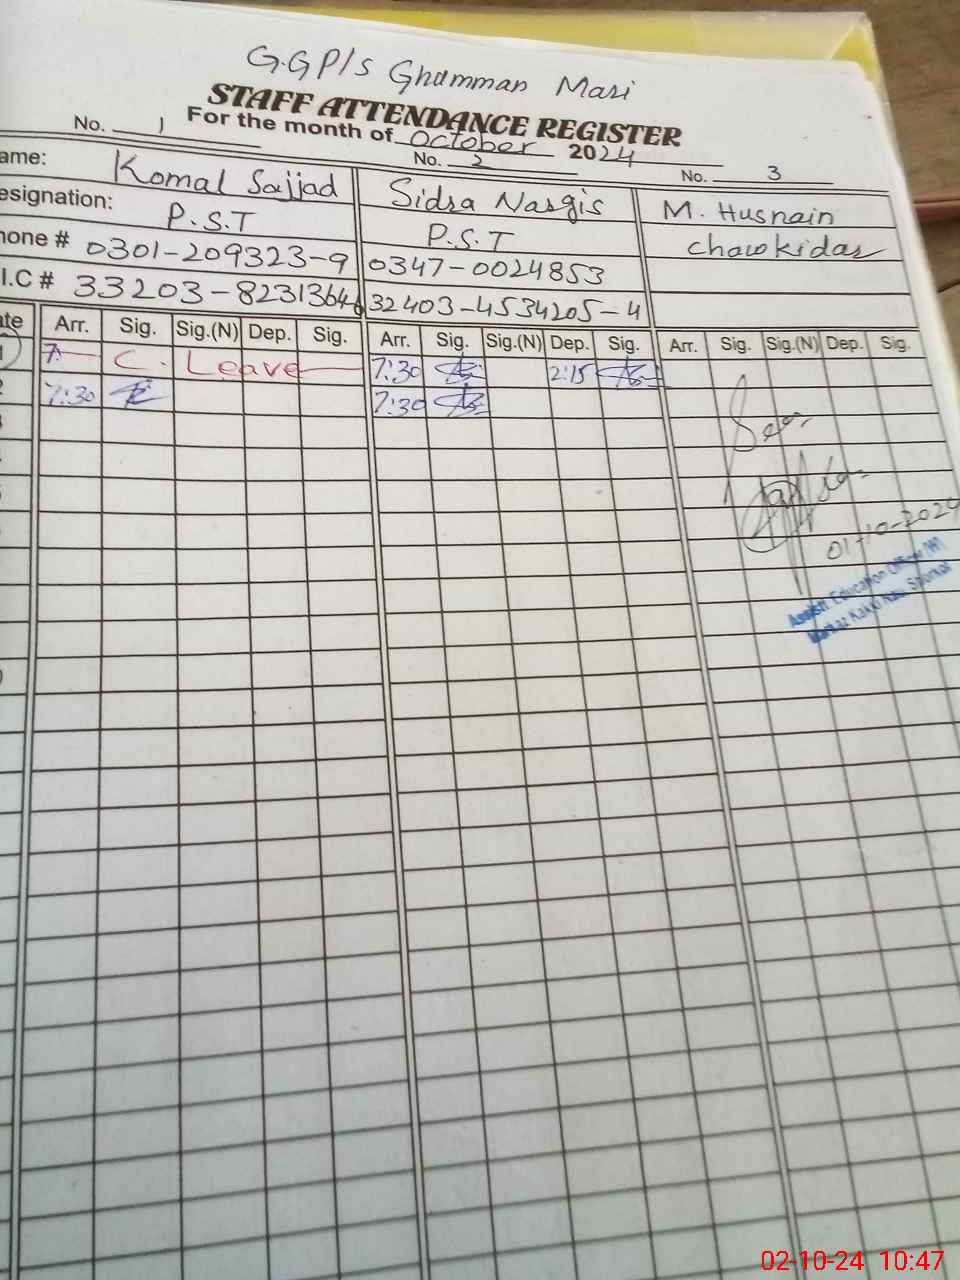 G.GP/S Ghamman Mari
STAFF ATTENDANCE REGISTER
For the month of October 2024
No. 1 No. 2 No. 3
ame: Komal Sajjad Sidra Nargis M. Husnain
esignation: P.S.T P.S.T Chawkidar
hone # 0301-209323-9 0347-0024853
I.C # 33203-8231364 32403-4534205-4
te Arr. Sig. Sig.(N) Dep. Sig. Arr. Sig. Sig.(N) Dep. Sig. Arr. Sig. Sig.(N) Dep. Sig.
1 C. Leave 7:30 2:15
2 7:30 7:30
01-10-2024
Education Officer
02-10-24 10:47